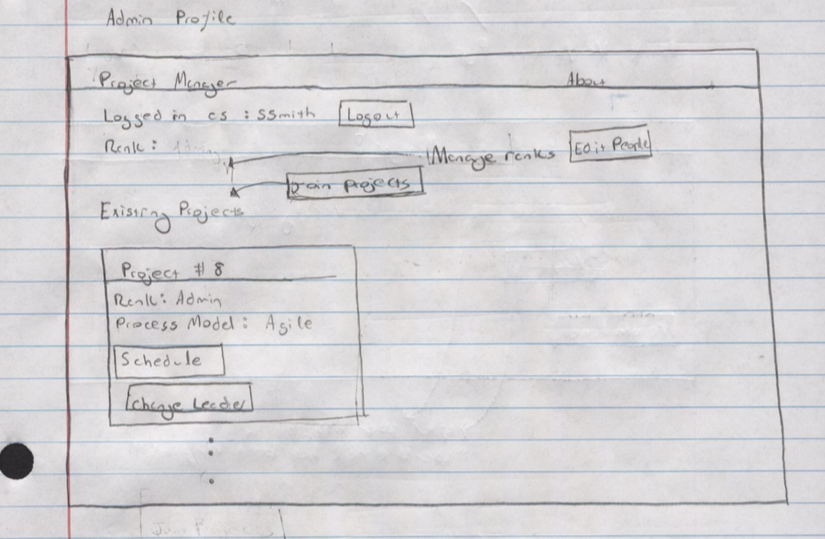 Admin Profile
Project Manager About
Logged in as : ssmith Logout
Rank :
Manage ranks Edit People
Join projects
Existing Projects
Project # 8
Rank: Admin
Process Model : Agile
Schedule
Change Leader